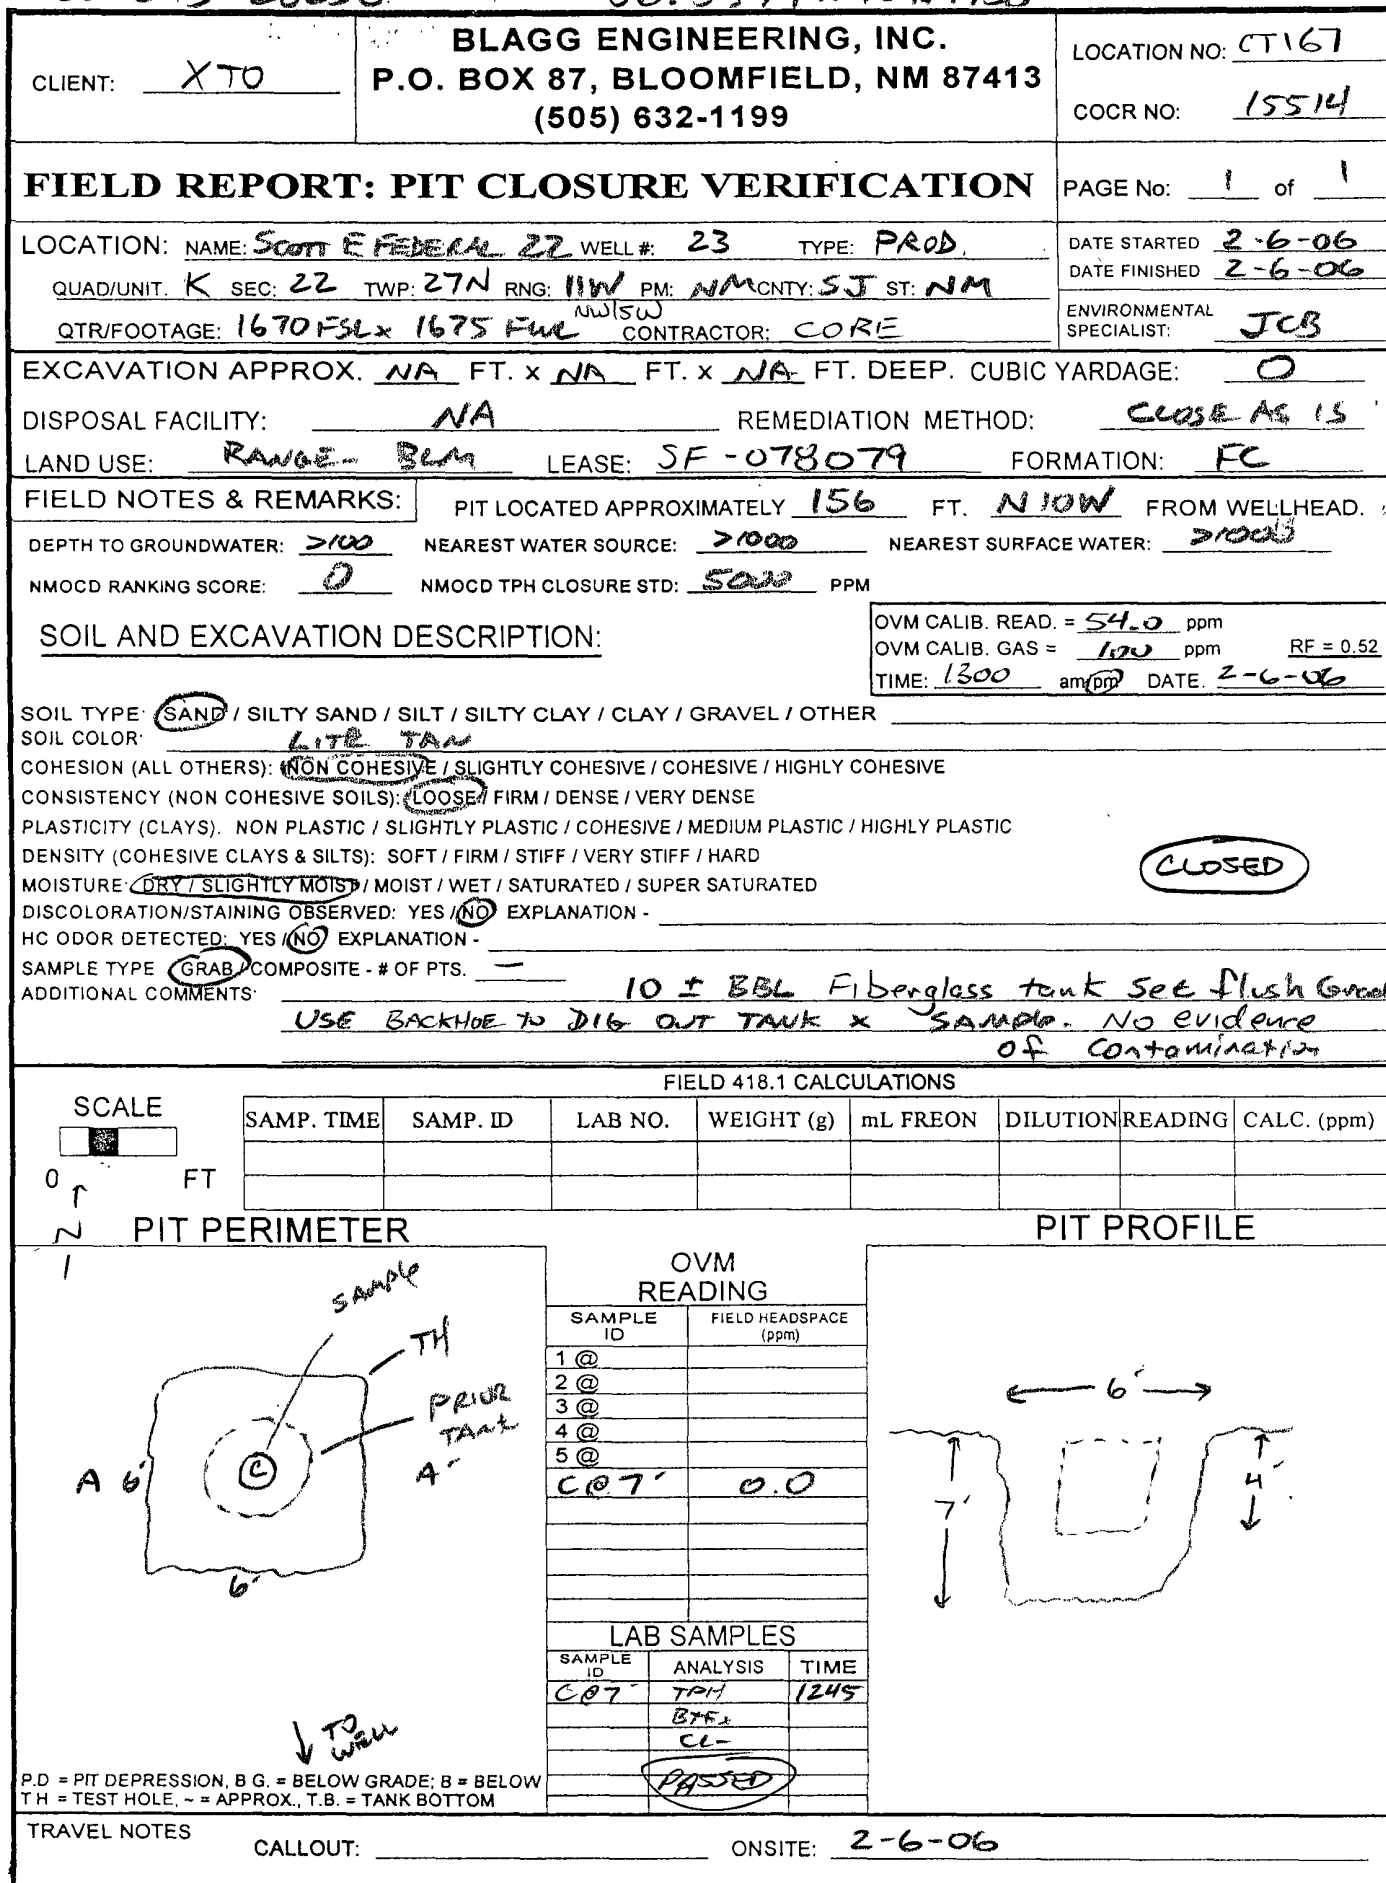 BLAGG ENGINEERING, INC.
P.O. BOX 87, BLOOMFIELD, NM 87413
(505) 632-1199
CLIENT: XTO
LOCATION NO: CT167
COCR NO: 15514
FIELD REPORT: PIT CLOSURE VERIFICATION
PAGE No: 1 of 1
LOCATION: NAME: SCOTT E FEDERAL 22 WELL #: 23 TYPE: PROD.
DATE STARTED 2-6-06
DATE FINISHED 2-6-06
QUAD/UNIT. K SEC: 22 TWP: 27N RNG: 11W PM: NM CNTY: SJ ST: NM
QTR/FOOTAGE: 1670 FSL x 1675 FWL NW/SW CONTRACTOR: CORE
ENVIRONMENTAL
SPECIALIST: JCB
EXCAVATION APPROX. NA FT. x NA FT. x NA FT. DEEP. CUBIC YARDAGE: 0
DISPOSAL FACILITY: NA REMEDIATION METHOD: CLOSE AS IS
LAND USE: RANGE - BLM LEASE: SF-078079 FORMATION: FC
FIELD NOTES & REMARKS: PIT LOCATED APPROXIMATELY 156 FT. N10W FROM WELLHEAD.
DEPTH TO GROUNDWATER: >100 NEAREST WATER SOURCE: >1000 NEAREST SURFACE WATER: >1000
NMOCD RANKING SCORE: 0 NMOCD TPH CLOSURE STD: 5000 PPM
SOIL AND EXCAVATION DESCRIPTION:
OVM CALIB. READ. = 54.0 ppm
OVM CALIB. GAS = 100 ppm RF = 0.52
TIME: 1300 am/pm DATE. 2-6-06
SOIL TYPE: SAND / SILTY SAND / SILT / SILTY CLAY / CLAY / GRAVEL / OTHER
SOIL COLOR: LITE TAN
COHESION (ALL OTHERS): NON COHESIVE / SLIGHTLY COHESIVE / COHESIVE / HIGHLY COHESIVE
CONSISTENCY (NON COHESIVE SOILS): LOOSE / FIRM / DENSE / VERY DENSE
PLASTICITY (CLAYS). NON PLASTIC / SLIGHTLY PLASTIC / COHESIVE / MEDIUM PLASTIC / HIGHLY PLASTIC
DENSITY (COHESIVE CLAYS & SILTS): SOFT / FIRM / STIFF / VERY STIFF / HARD
CLOSED
MOISTURE: DRY / SLIGHTLY MOIST / MOIST / WET / SATURATED / SUPER SATURATED
DISCOLORATION/STAINING OBSERVED: YES / NO EXPLANATION -
HC ODOR DETECTED: YES / NO EXPLANATION -
SAMPLE TYPE GRAB / COMPOSITE - # OF PTS. —
ADDITIONAL COMMENTS: 10 ± BBL Fiberglass tank set flush
USE BACKHOE TO DIG OUT TANK x SAMPLE. No evidence
of contamination
FIELD 418.1 CALCULATIONS
SCALE
SAMP. TIME SAMP. ID LAB NO. WEIGHT (g) mL FREON DILUTION READING CALC. (ppm)
0 FT
N
PIT PERIMETER
PIT PROFILE
OVM
READING
SAMPLE ID FIELD HEADSPACE (ppm)
1 @
2 @
3 @
4 @
5 @
C@7' 0.0
SAMPLE
TH
PRIOR
TANK
A 6'
C
A'
6'
6'
7'
4'
LAB SAMPLES
SAMPLE ID ANALYSIS TIME
C@7' TPH 1245
BTEX
CL-
PASSED
TO
WELL
P.D = PIT DEPRESSION, B G. = BELOW GRADE; B = BELOW
T H = TEST HOLE, ~ = APPROX., T.B. = TANK BOTTOM
TRAVEL NOTES
CALLOUT: ONSITE: 2-6-06